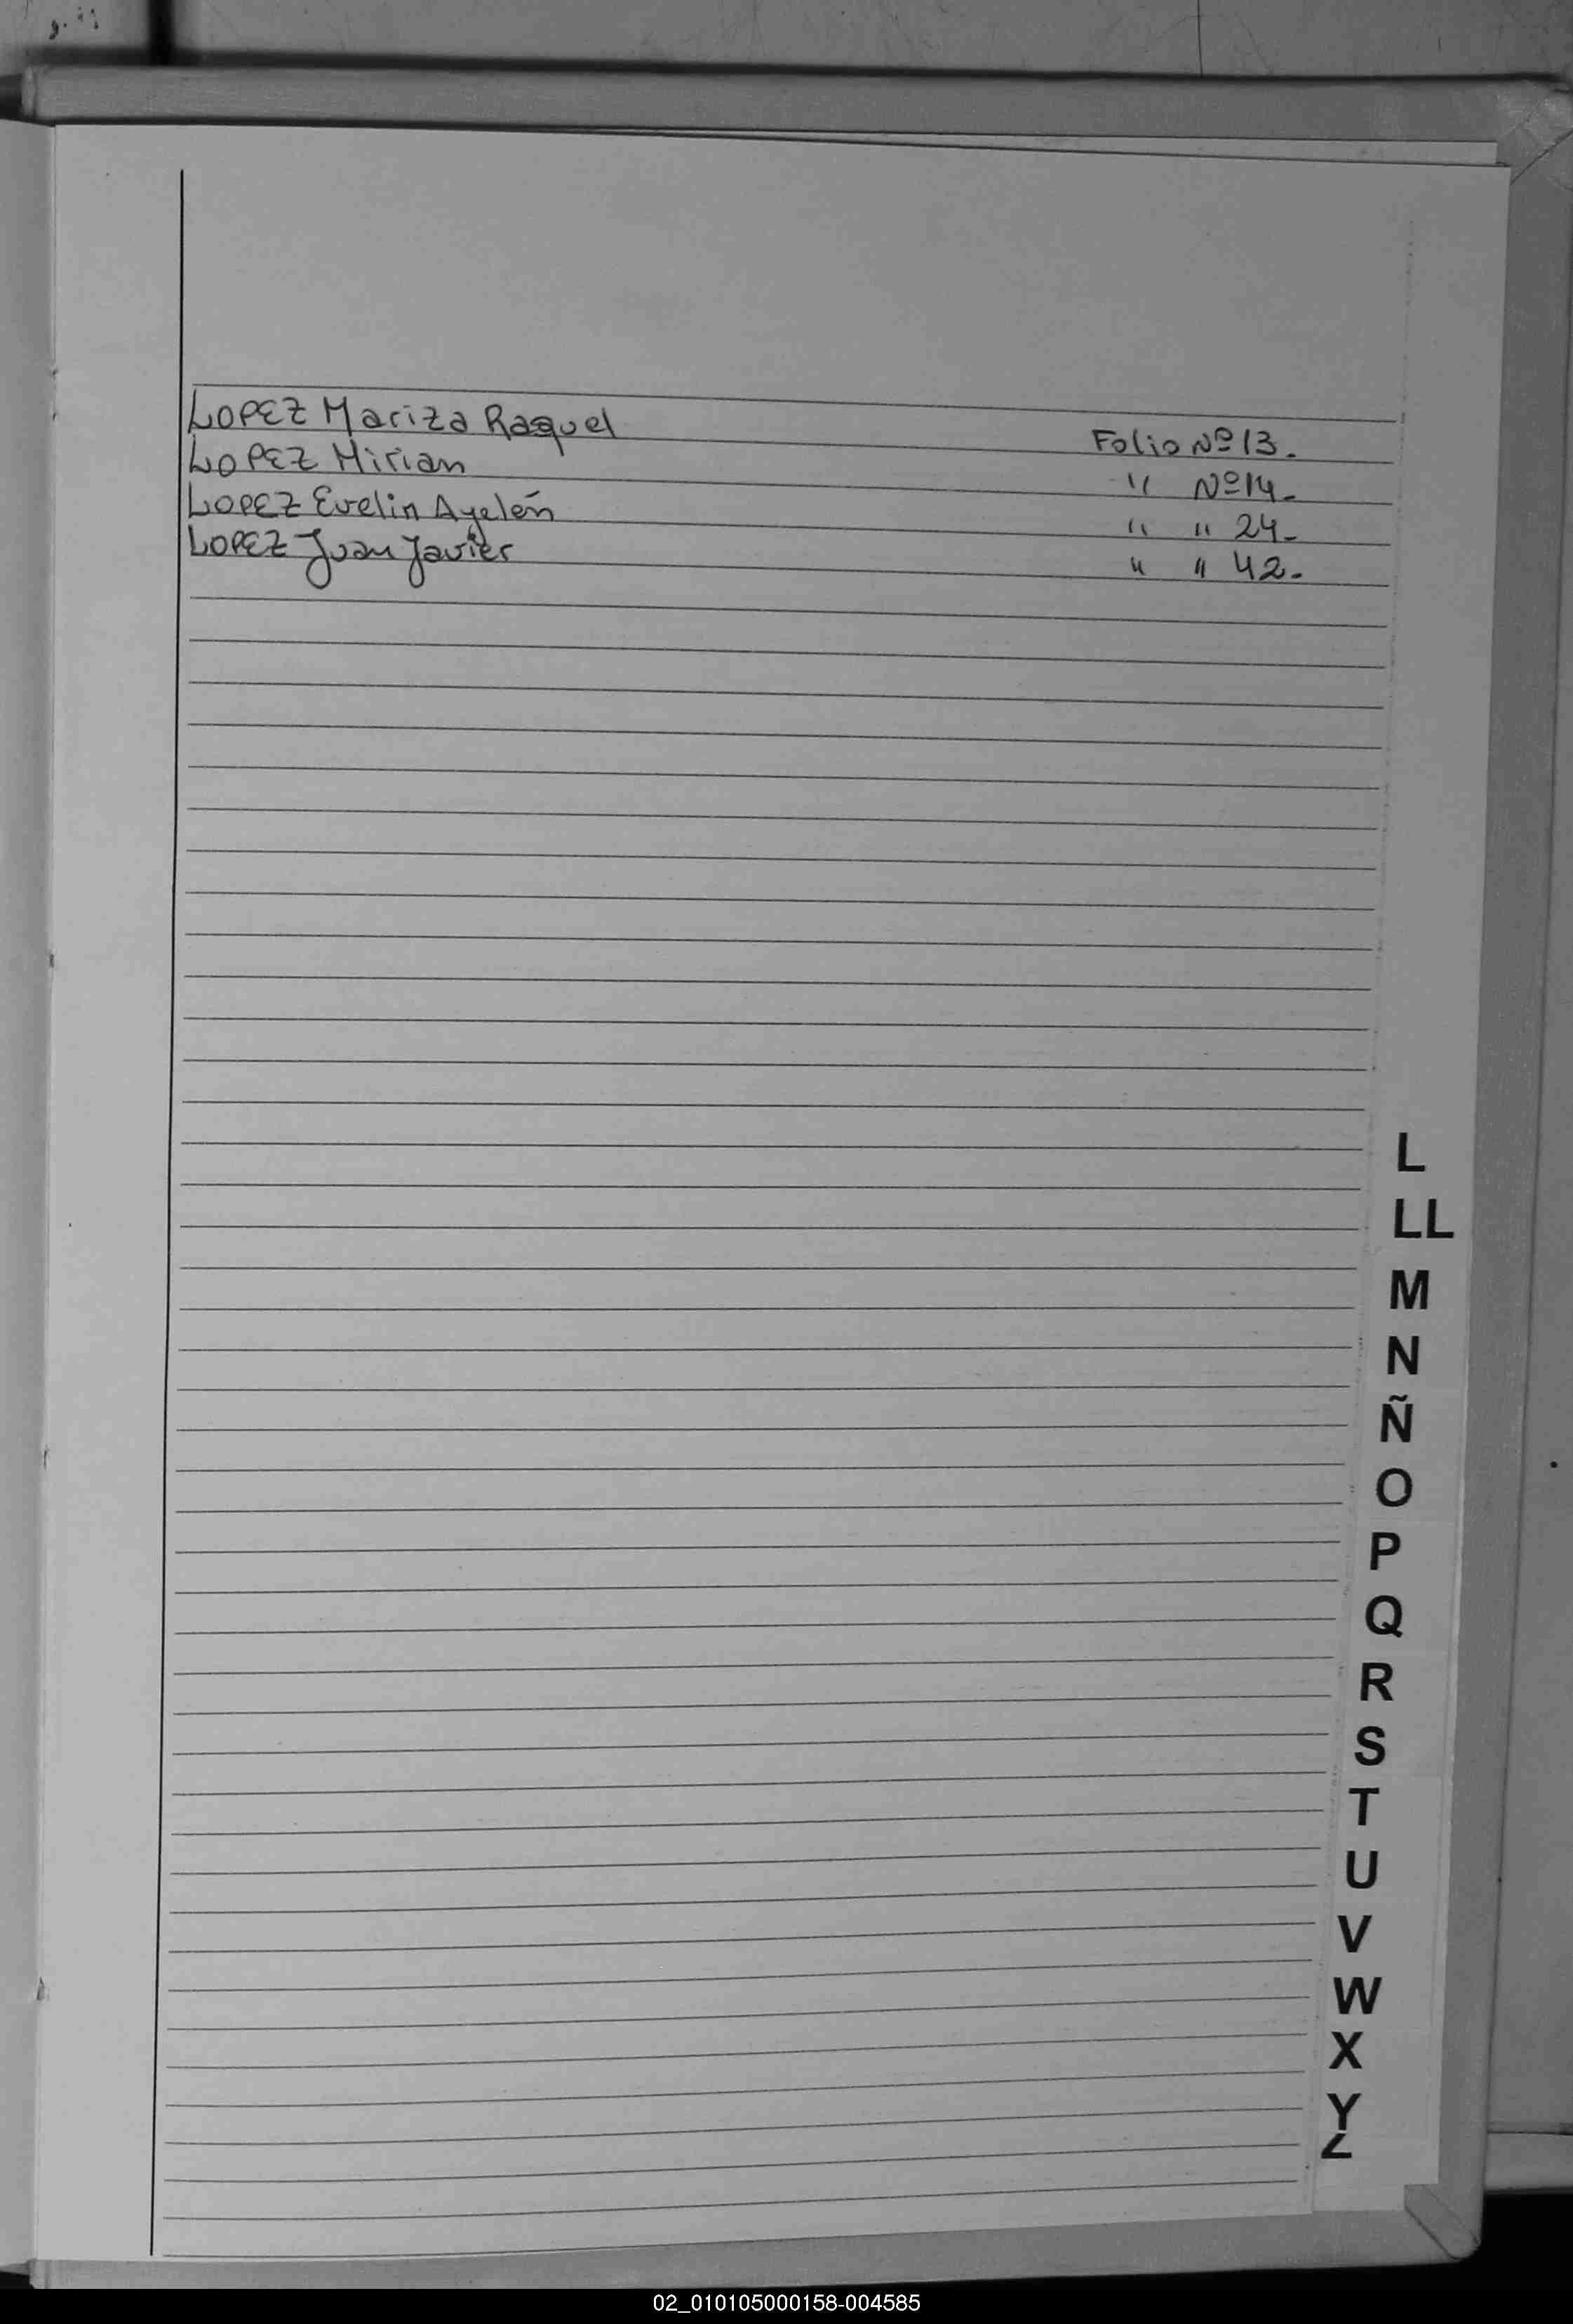 LOPEZ Mariza Raquel Folio Nº 13.
LOPEZ Mirian " Nº 14.
LOPEZ Evelin Ayelén " " 24.
LOPEZ Juan Javier " " 42.
L
LL
M
N
Ñ
O
P
Q
R
S
T
U
V
W
X
Y
Z
02_010105000158-004585